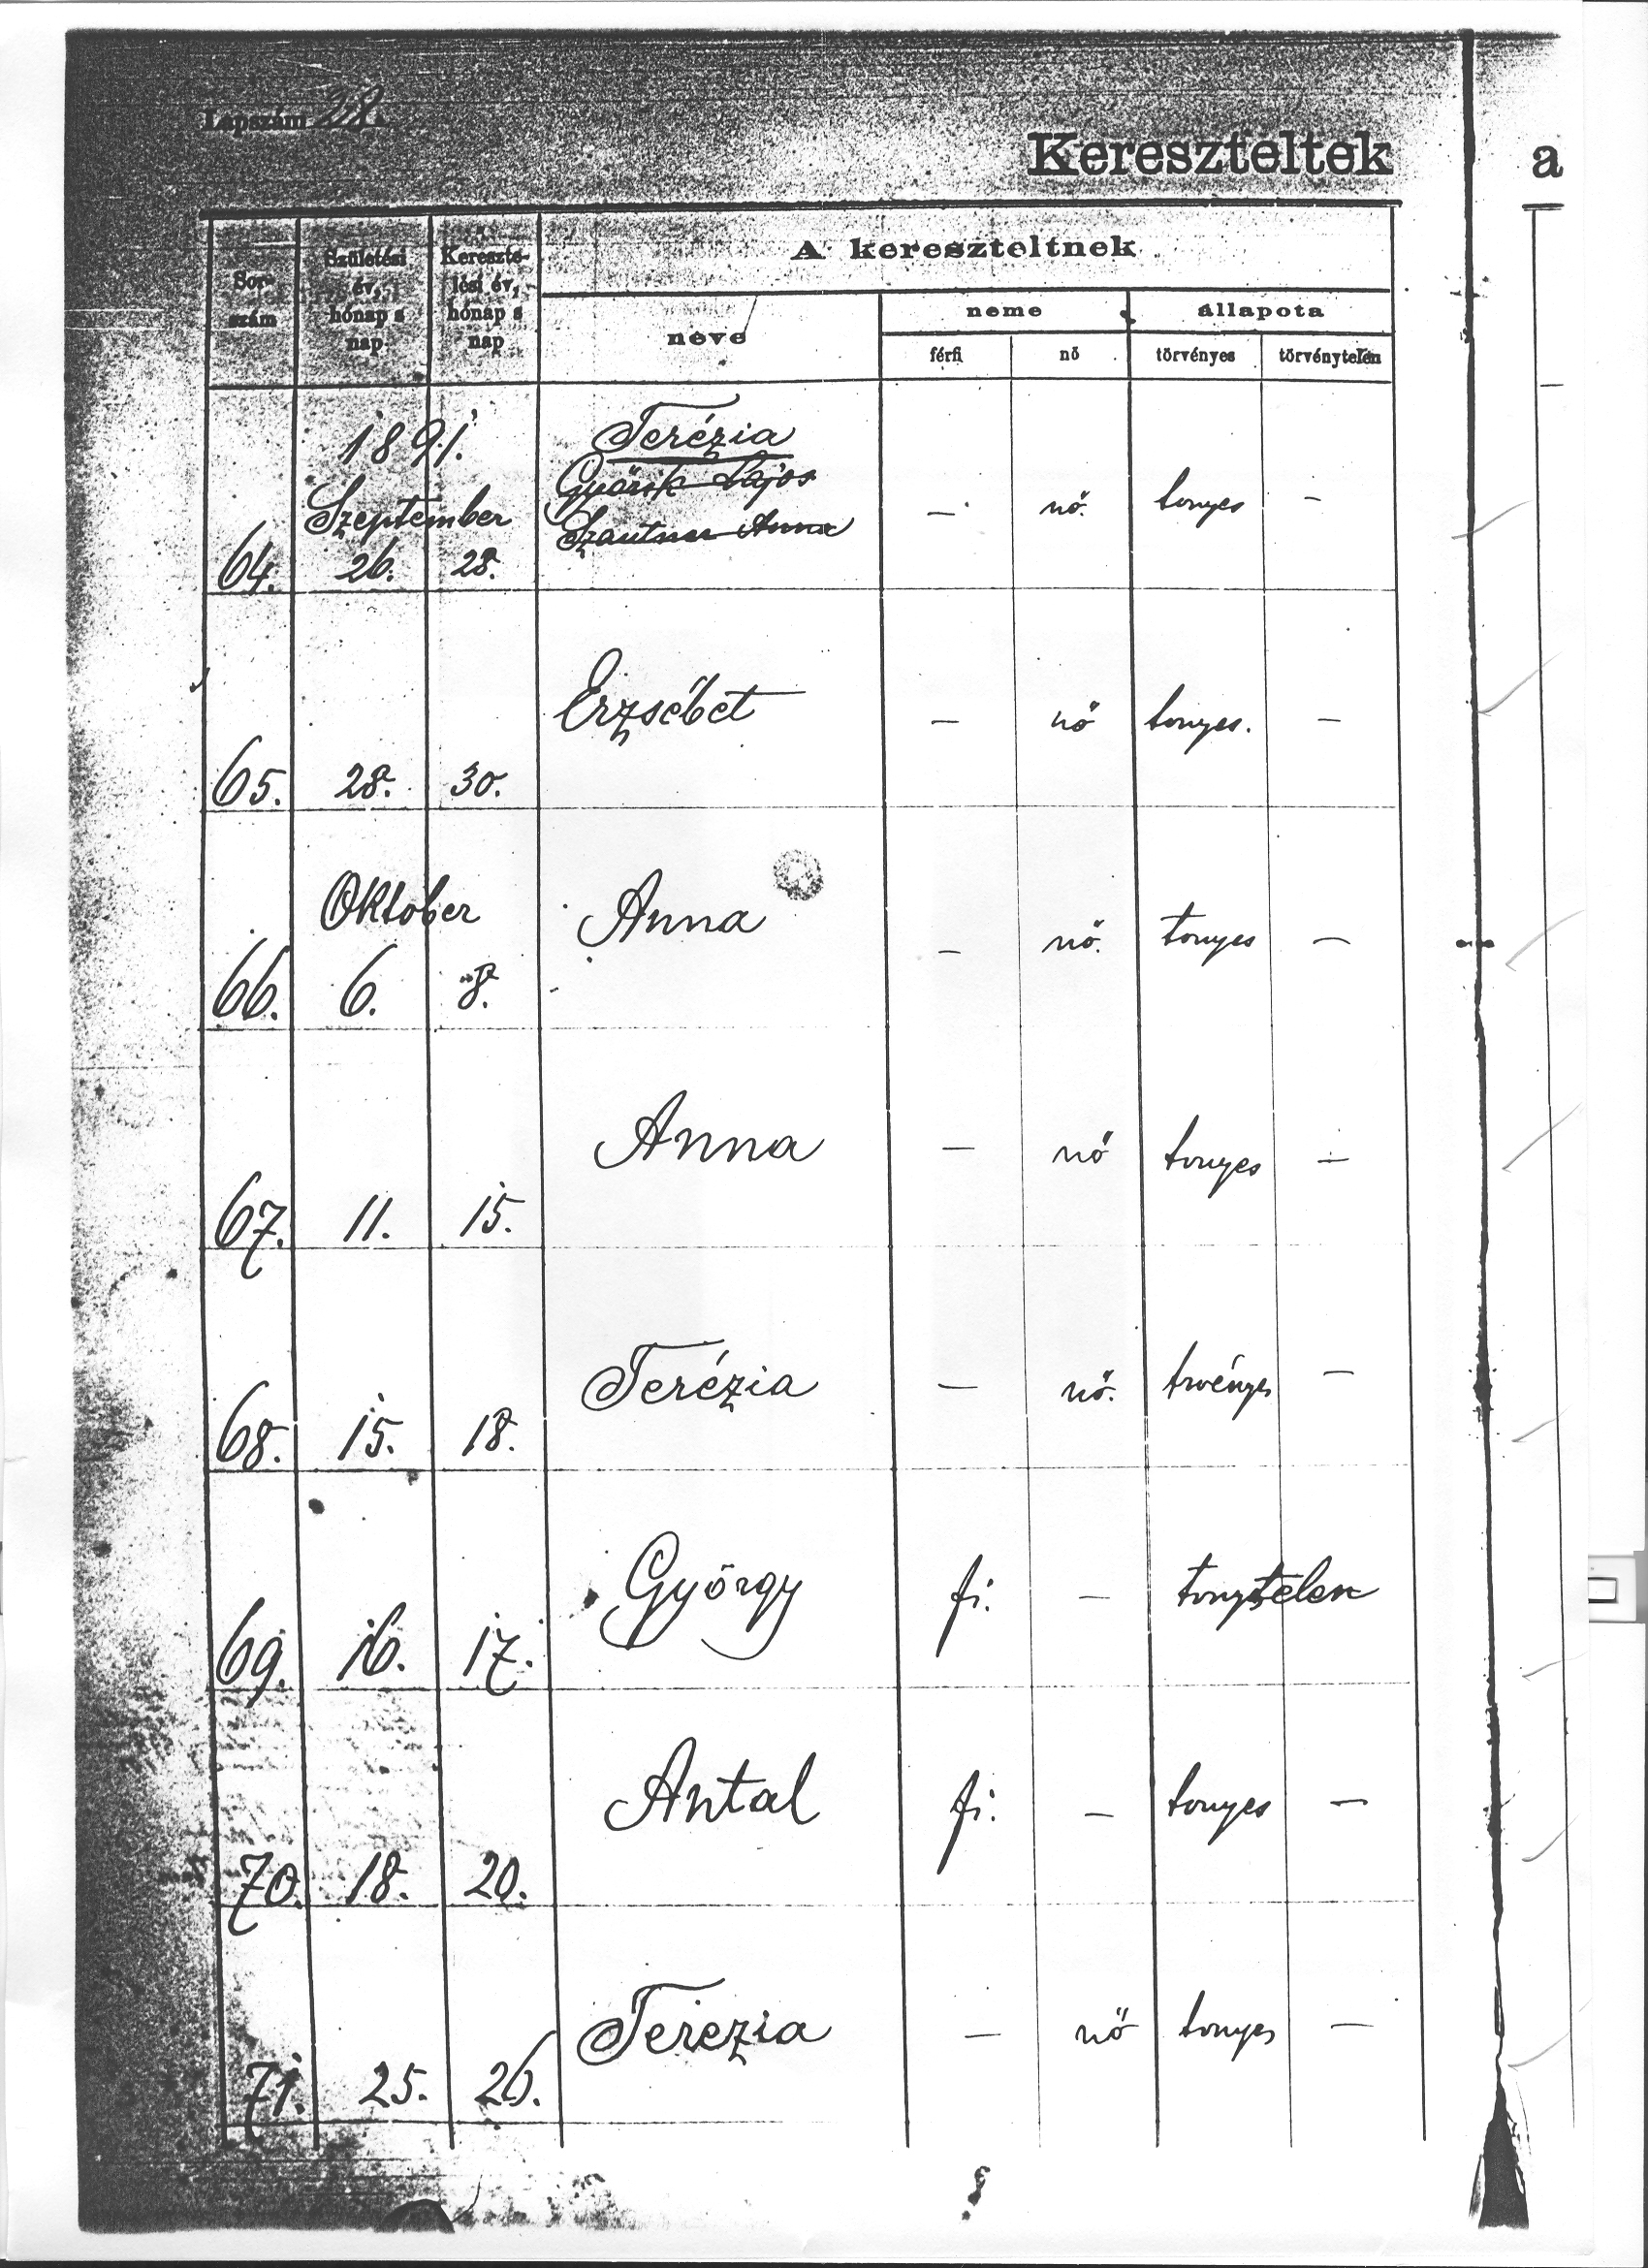 Lapszám 28.
Kereszteltek a
Sor-
szám
Születési
év,
hónap s
nap
Keresztelési év,
hónap s
nap
A kereszteltnek
neve
neme
állapota
férfi
nő
törvényes
törvénytelen
1891.
Szeptember
64. 26. 28. Terézia
Győrik Lajos
Szautner Anna
— nő. tvnyes —
65. 28. 30. Erzsébet — nő tvnyes. —
Október
66. 6. 8. Anna — nő. tvnyes —
67. 11. 15. Anna — nő tvnyes —
68. 15. 18. Terézia — nő. tvényes —
69. 16. 17. György fi. — tvnytelen
70. 18. 20. Antal fi. — tvnyes —
71. 25. 26. Terezia — nő tvnyes —